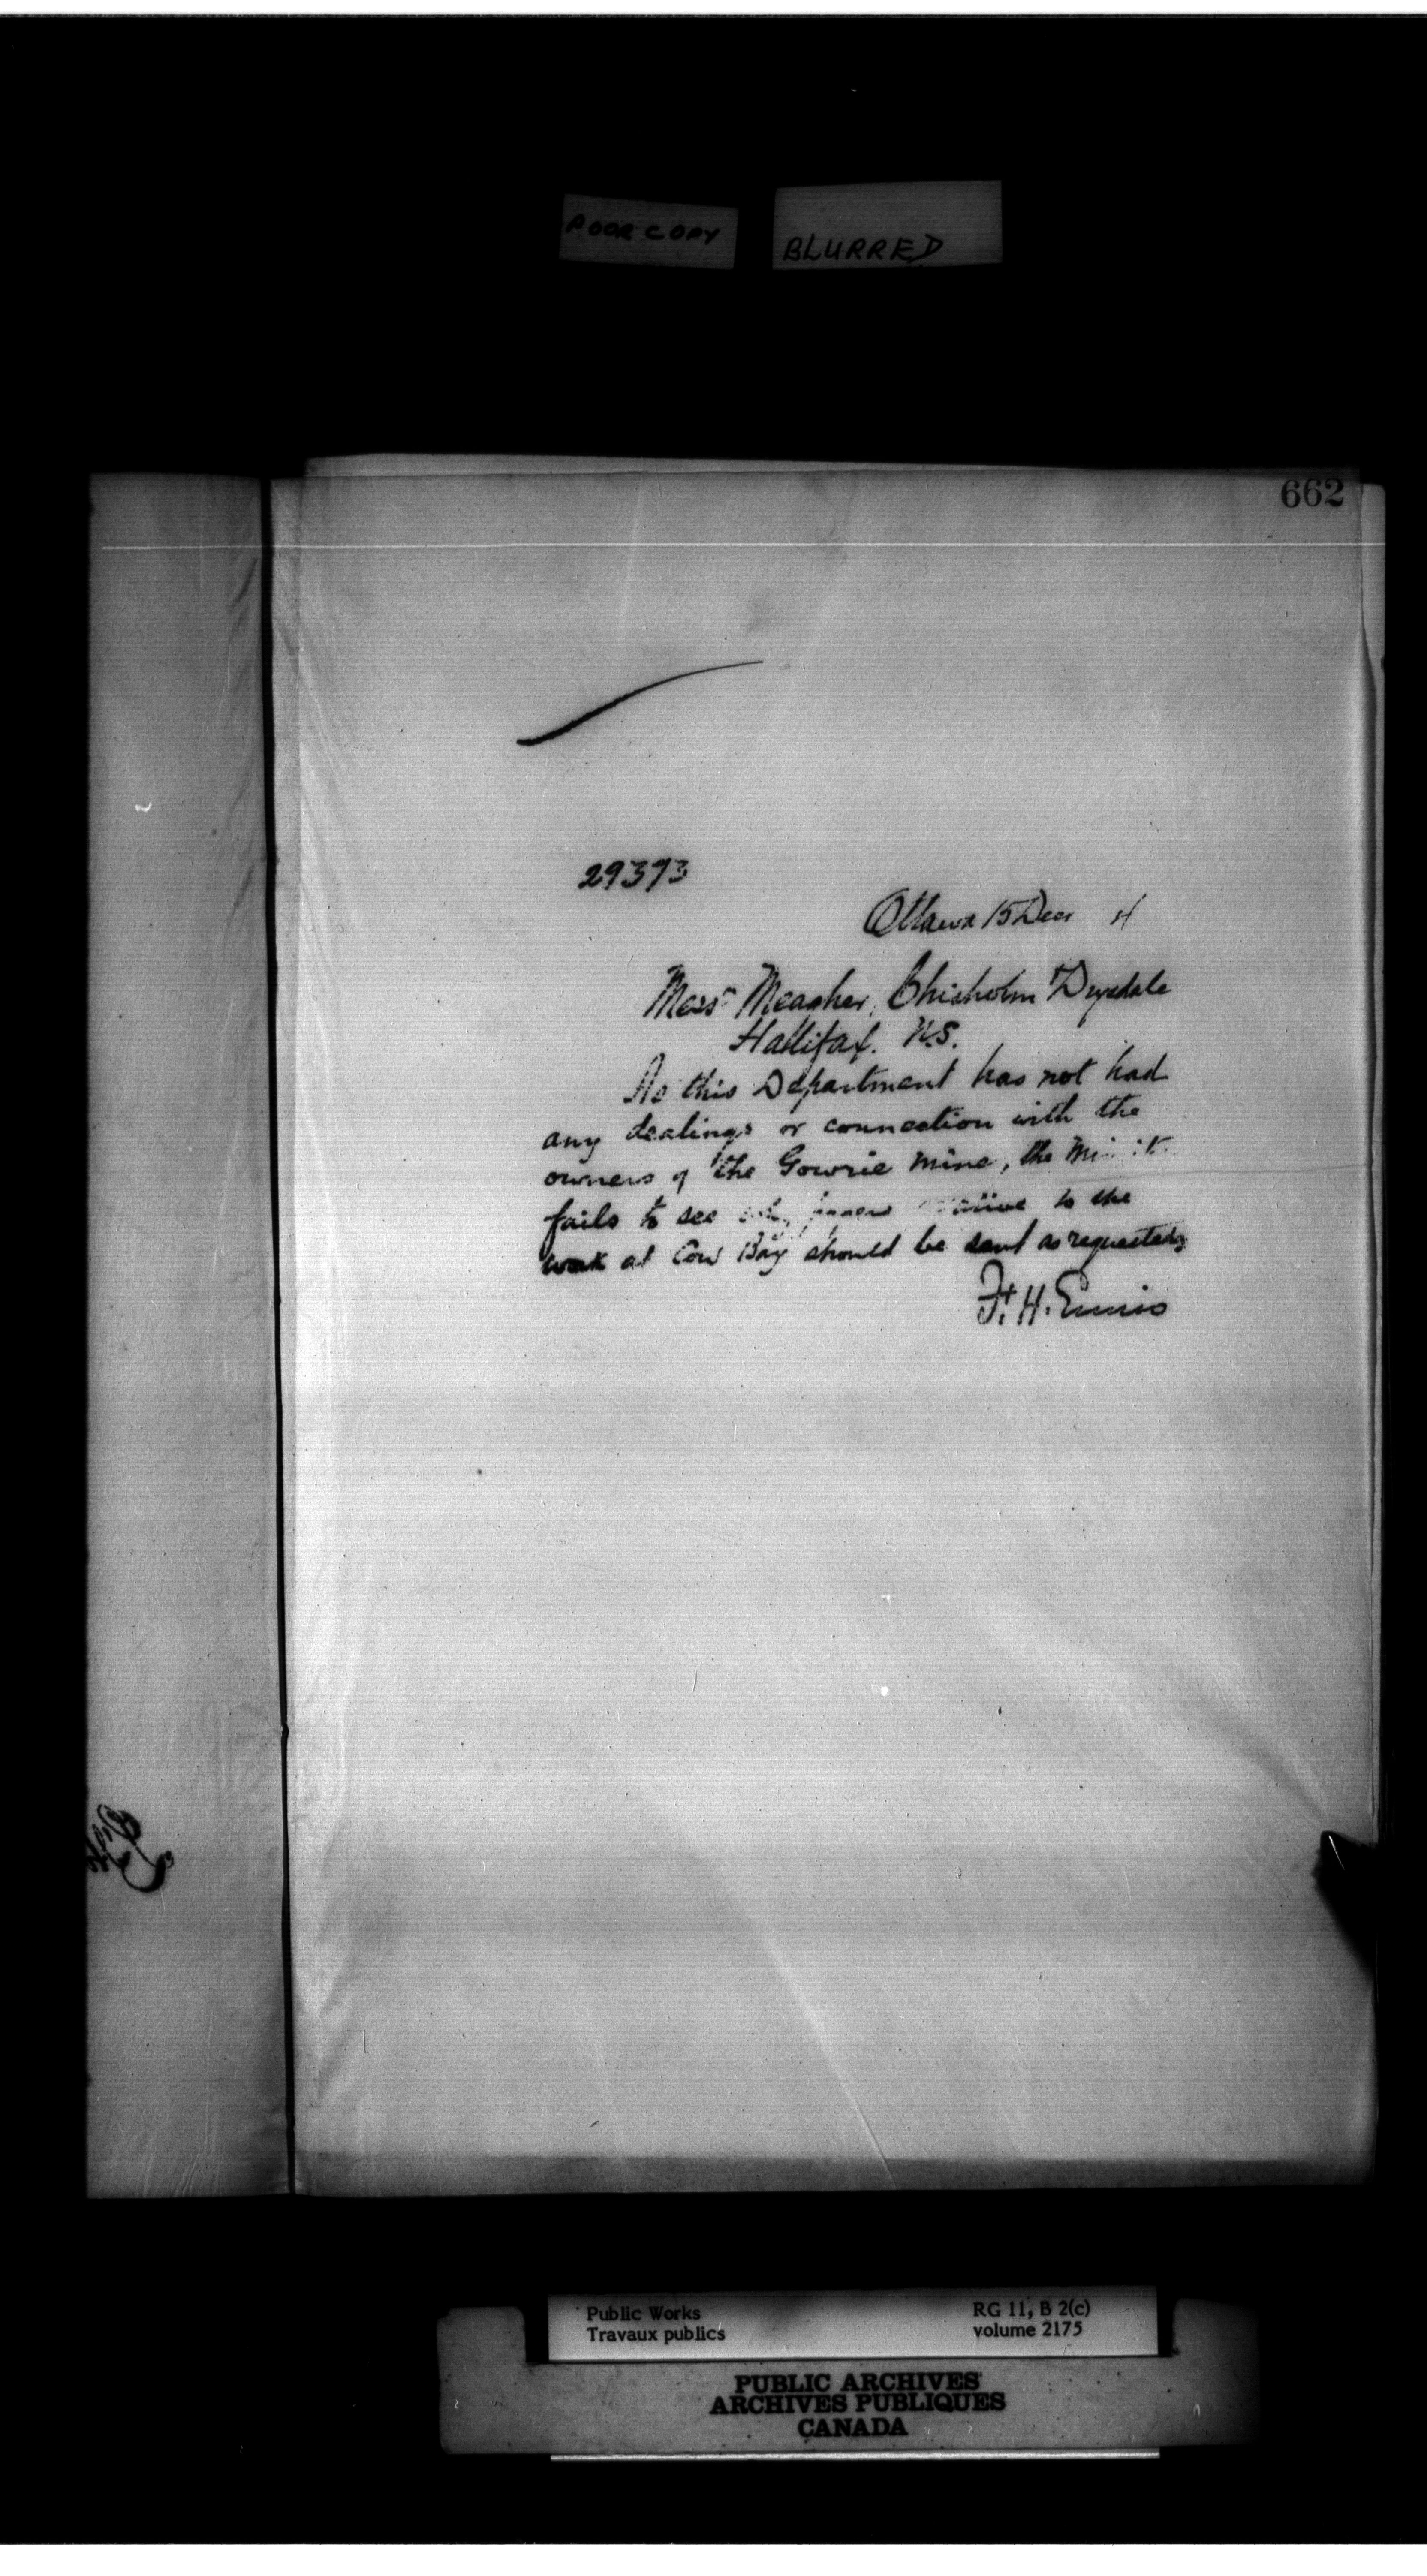 POOR COPY
BLURRED
662
29373
Ottawa 15 Decr 4
Messrs Meagher, Chisholm & Drysdale
Hallifax. N.S.
As this Department has not had
any dealings or connection with the
owners of the Gowrie mine, the
fails to see why papers relative to the
work at Cow Bay should be sent as requested
F. H. Ennis
Public Works
Travaux publics
RG 11, B 2(c)
volume 2175
PUBLIC ARCHIVES
ARCHIVES PUBLIQUES
CANADA